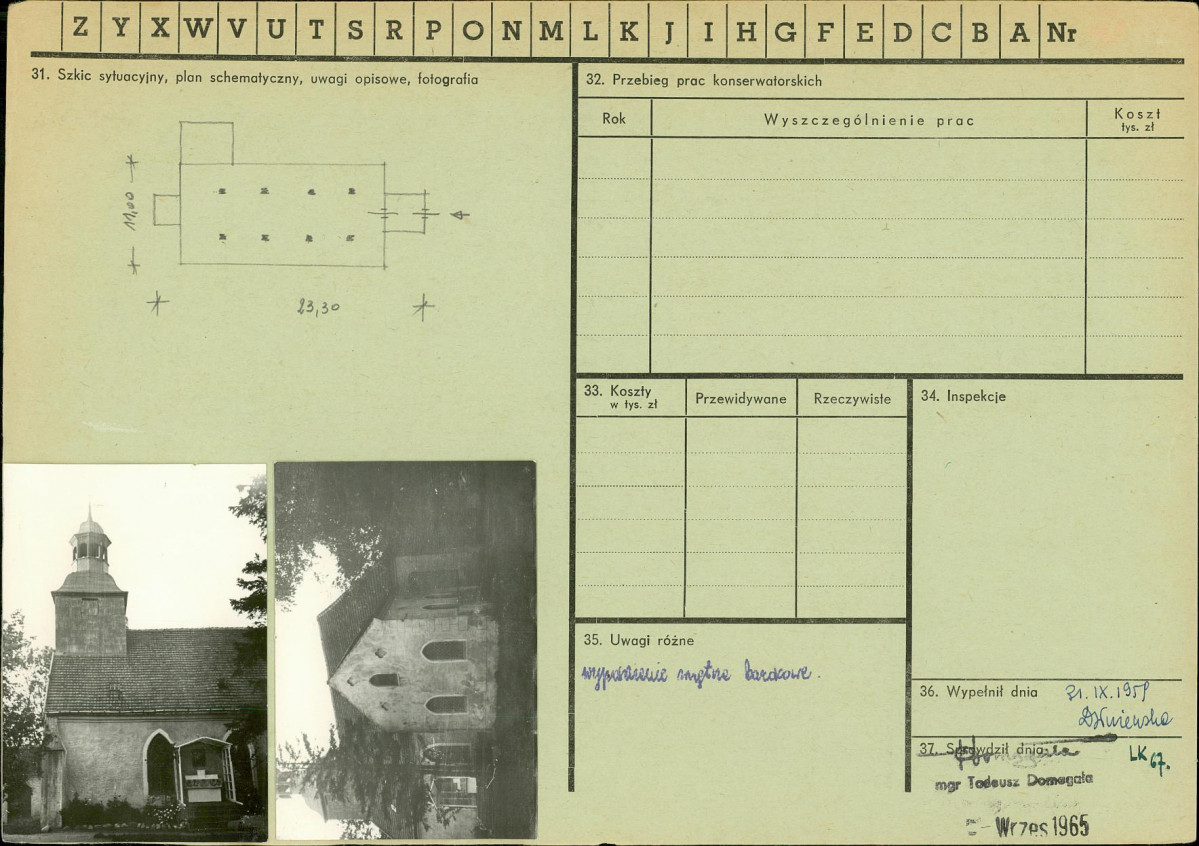 Z Y X W V U T S R P O N M L K J I H G F E D C B A Nr
31. Szkic sytuacyjny, plan schematyczny, uwagi opisowe, fotografia
11,00
23,30
32. Przebieg prac konserwatorskich
Rok Wyszczególnienie prac Koszt
tys. zł
33. Koszty
w tys. zł
Przewidywane Rzeczywiste
34. Inspekcje
35. Uwagi różne
barokowe.
36. Wypełnił dnia 21.IX.1959
37. Sprawdził dnia
LK 67.
mgr Tadeusz Domagała
Wrzes 1965